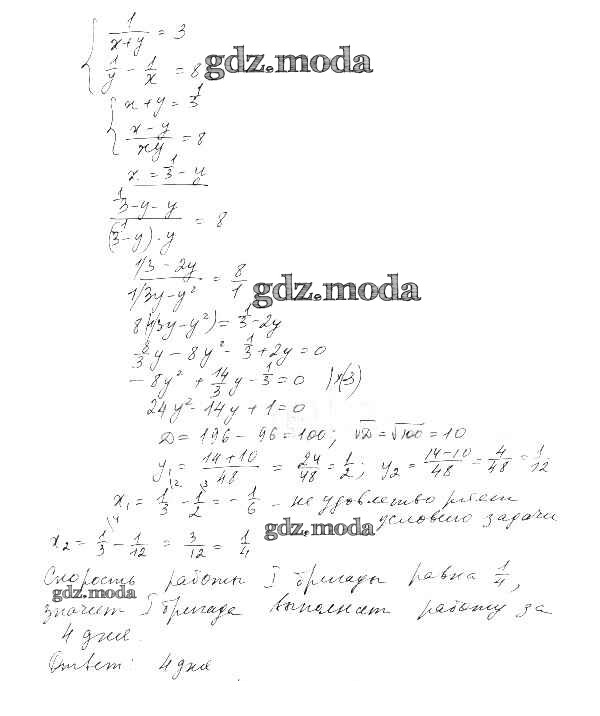 1/(x+y) = 3
1/y - 1/x = 8 gdz.moda
x + y = 1/3
(x-y)/xy = 8
x = 1/3 - y
(1/3 - y - y)/((1/3 - y)·y) = 8
(1/3 - 2y)/(1/3y - y²) = 8/1 gdz.moda
8(1/3y - y²) = 1/3 - 2y
8/3y - 8y² - 1/3 + 2y = 0
- 8y² + 14/3y - 1/3 = 0 |×(-3)
24y² - 14y + 1 = 0
D = 196 - 96 = 100; √D = √100 = 10
y₁ = (14+10)/48 = 24/48 = 1/2; y₂ = (14-10)/48 = 4/48 = 1/12
x₁ = 1/3 - 1/2 = - 1/6 - не удовлетворяет
условию задачи
x₂ = 1/3 - 1/12 = 3/12 = 1/4 gdz.moda
Скорость работы I бригады равна 1/4,
gdz.moda
значит I бригада выполнит работу за
4 дня.
Ответ: 4 дня